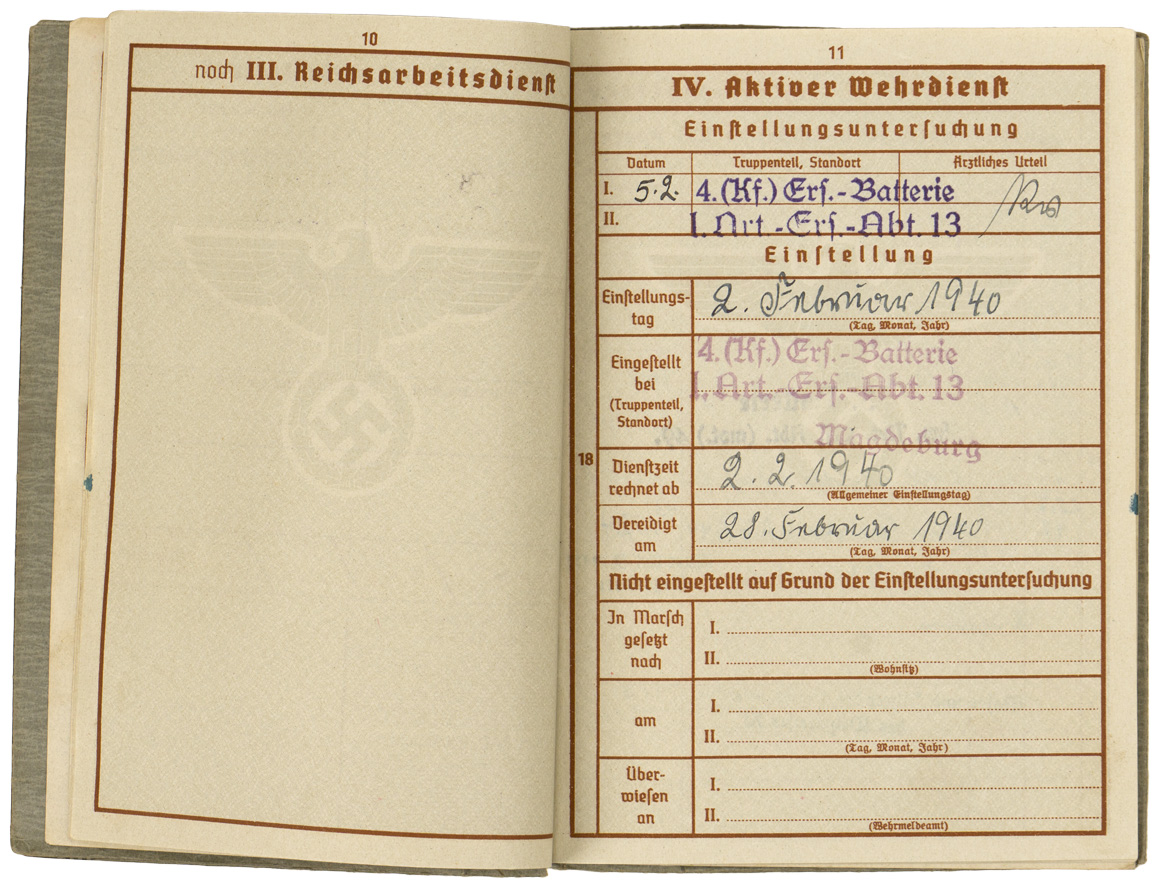 10
noch III. Reichsarbeitsdienst
11
IV. Aktiver Wehrdienst
Einstellungsuntersuchung
Datum Truppenteil, Standort Ärztliches Urteil
I. 5.2. 4.(Kf.) Ers.-Batterie
II. I. Art.-Ers.-Abt. 13
Einstellung
Einstellungs-
tag
2. Februar 1940
(Tag, Monat, Jahr)
Eingestellt
bei
(Truppenteil,
Standort)
4.(Kf.) Ers.-Batterie
I. Art.-Ers.-Abt. 13
Magdeburg
18
Dienstzeit
rechnet ab
2. 2. 1940
(Allgemeiner Einstellungstag)
Vereidigt
am
28. Februar 1940
(Tag, Monat, Jahr)
Nicht eingestellt auf Grund der Einstellungsuntersuchung
In Marsch
gesetzt
nach
I.
II.
(Wohnsitz)
am
I.
II.
(Tag, Monat, Jahr)
Über-
wiesen
an
I.
II.
(Wehrmeldeamt)